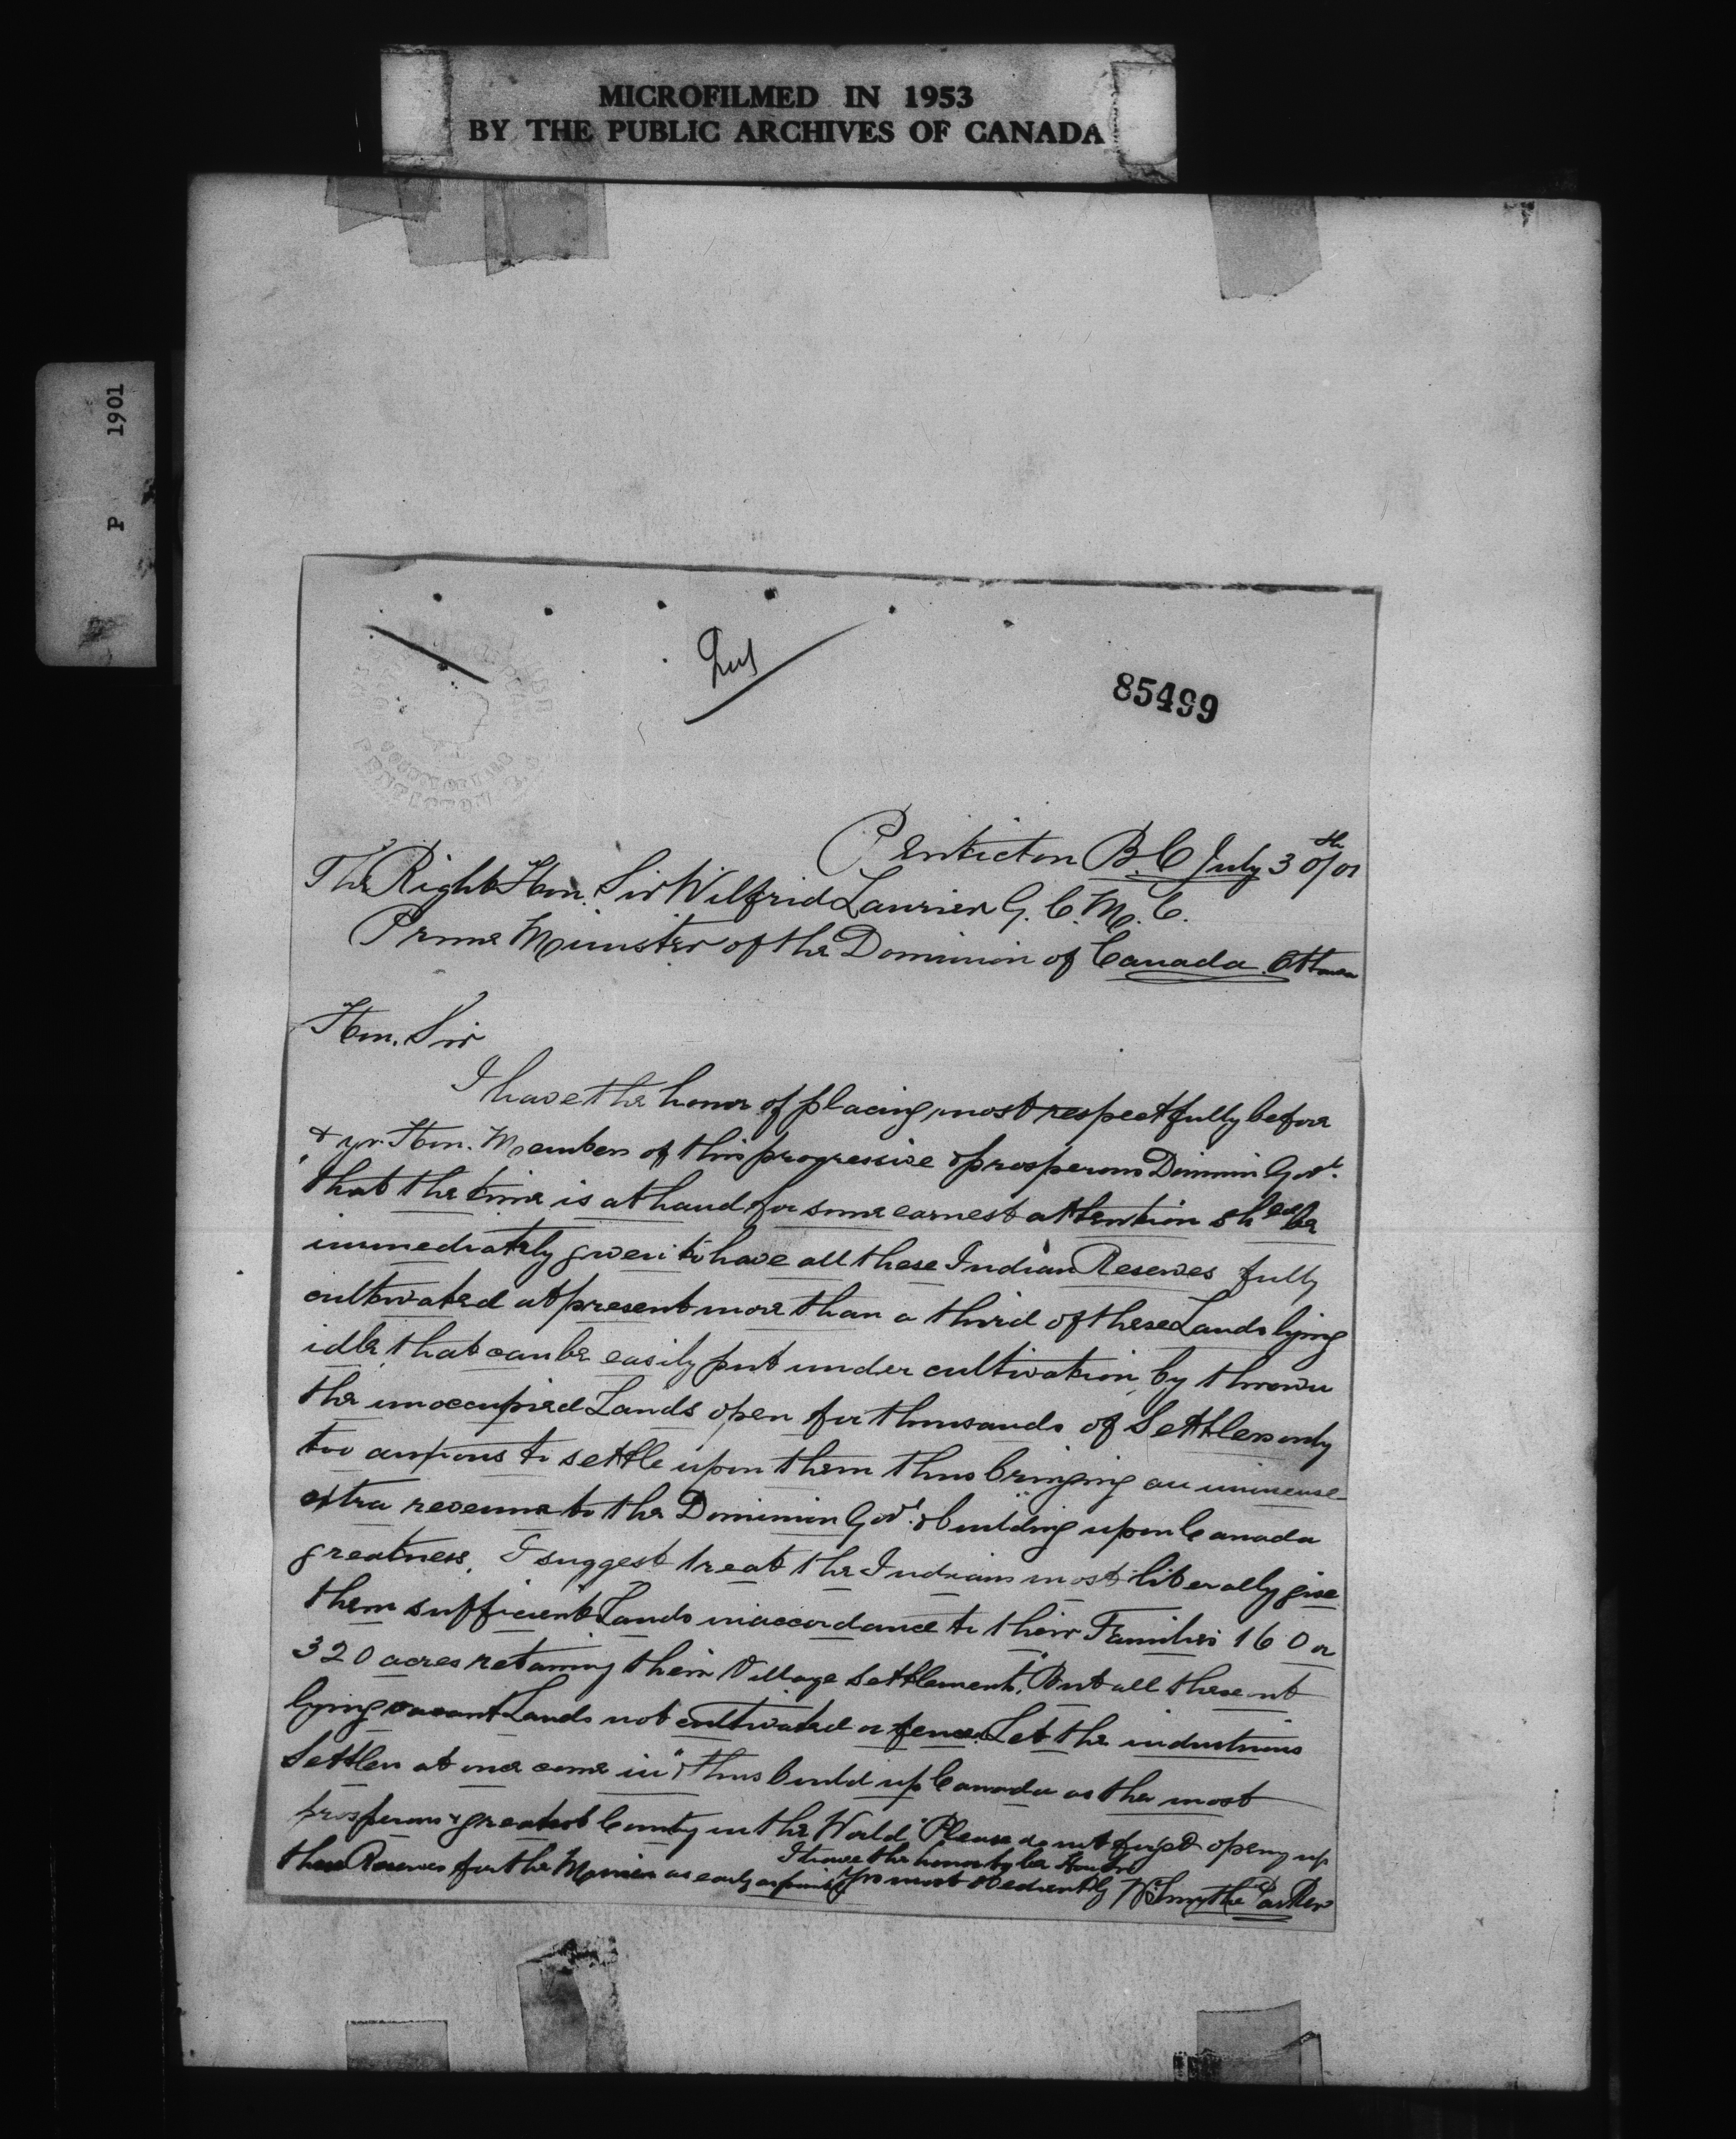 MICROFILMED IN 1953
BY THE PUBLIC ARCHIVES OF CANADA
P 1901
85499
Penticton B.C July 30th/01
The Right Hon. Sir Wilfrid Laurier G. C. M. G.
Prime Minister of the Dominion of Canada Ottawa
Hon. Sir
I have the honor of placing most respectfully before
& yr. Hon. Members of this progressive & prosperous Dominion Govt.
that the time is at hand for some earnest attention shld be
immediately given to have all these Indian Reserves fully
cultivated at present more than a third of these Lands lying
idle, that can be easily put under cultivation, by thrown
the unoccupied Lands open for thousands of Settlers only
too anxious to settle upon them thus bringing an immense
extra revenue to the Dominion Govt. & building upon Canada
greatness. I suggest treat the Indians most liberally give
them sufficient Lands in accordance to their Families 160 or
320 acres retaining their Village Settlement. But all these out
lying vacant Lands not cultivated or fence. Let the industrious
Settler at once come in" & thus build up Canada as the most
prosperous & greatest County in the World. Please do not forget opening up
these Reserves for the as early as possible
I have the honor to be Hon Sir
Yrs most obediently W Smythe Parker